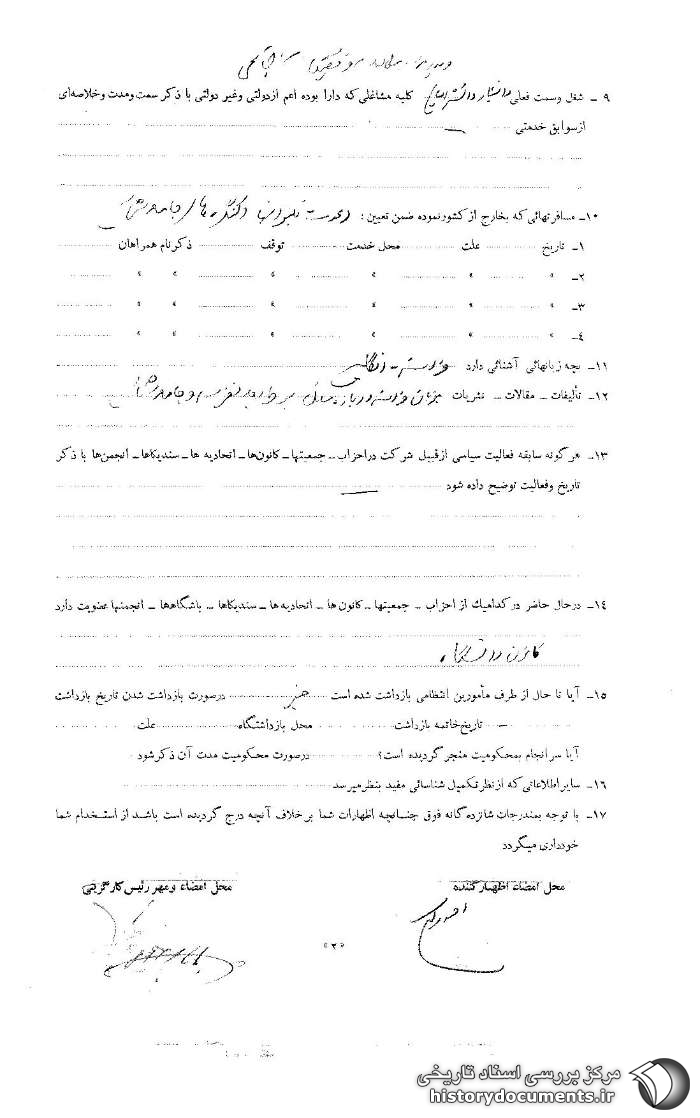 و مدیر مطالعه و تحقیقات اجتماعی
۹ – شغل وسمت فعلی دانشیار دانشگاه کلیه مشاغلی که دارا بوده اعم ازدولتی وغیر دولتی با ذکر سمت ومدت وخلاصه‌ای
ازسوابق خدمتی –
۱۰– مسافرتهائی که بخارج از کشورنموده ضمن تعیین :
۱– تاریخ علت محل خدمت توقف ذکرنام همراهان
۲– » » » » » »
۳– » » » » » »
۴– » » » » » »
۱۱– بچه زبانهائی آشنائی دارد فرانسه – انگلیسی
۱۲– تألیفات – مقالات – نشریات بزبان فرانسه درباره مسائل
۱۳– هرگونه سابقه فعالیت سیاسی ازقبیل شرکت دراحزاب – جمعیتها – کانون‌ها – اتحادیه ها – سندیکاها – انجمن‌ها با ذکر
تاریخ وفعالیت توضیح داده شود –
۱۴– درحال حاضر در کدامیك از احزاب – جمعیتها – کانون ها – اتحادیه‌ها – سندیکاها – باشگاهها – انجمنها عضویت دارد
کانون دانشگاه
۱۵– آیا تا حال از طرف مأمورین انتظامی بازداشت شده است خیر درصورت بازداشت شدن تاریخ بازداشت
– تاریخ خاتمه بازداشت محل بازداشتگاه علت
آیا سرانجام بمحکومیت منجر گردیده است؟ درصورت محکومیت مدت آن ذکرشود
۱۶– سایر اطلاعاتی که ازنظر تکمیل شناسائی مفید بنظرمیرسد
۱۷– با توجه بمندرجات شانزده گانه فوق چنانچه اظهارات شما برخلاف آنچه درج گردیده است باشد از استخدام شما
خودداری میگردد
محل امضاء اظهارکننده محل امضاء ومهر رئیس کارگزینی
«۲»
مرکز بررسی اسناد تاریخی
historydocuments.ir